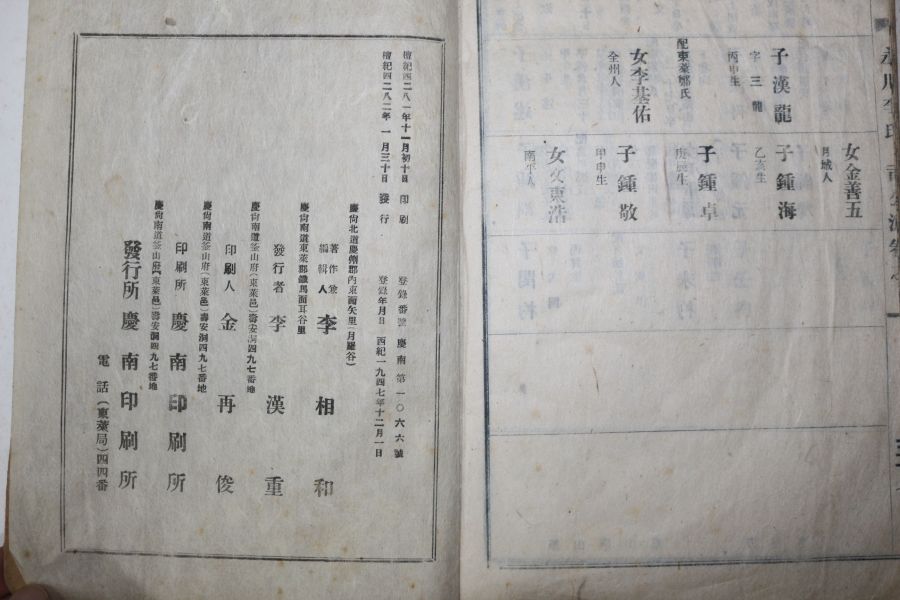 永川李氏
子漢龍
字三龍
丙申生
配東萊鄭氏
女李基佑
全州人
女金善五
月城人
子鍾海
乙亥生
子鍾卓
庚辰生
子鍾敬
甲申生
女文東浩
南平人
檀紀四二八一年十一月初十日 印刷
檀紀四二八二年一月三十日 發行
登錄番號 慶南第一〇六六號
登錄年月日 西紀一九四七年十二月一日
慶尙北道慶州郡內東面矢里(月羅谷)
著作兼
編輯人 李相和
慶尙南道東萊郡鐵馬面耳谷里
發行者 李漢重
慶尙南道釜山府(東萊邑)壽安洞四九七番地
印刷人 金再俊
慶尙南道釜山府(東萊邑)壽安洞四九七番地
印刷所 慶南印刷所
慶尙南道釜山府(東萊邑)壽安洞四九七番地
發行所 慶南印刷所
電話(東萊局)四四番